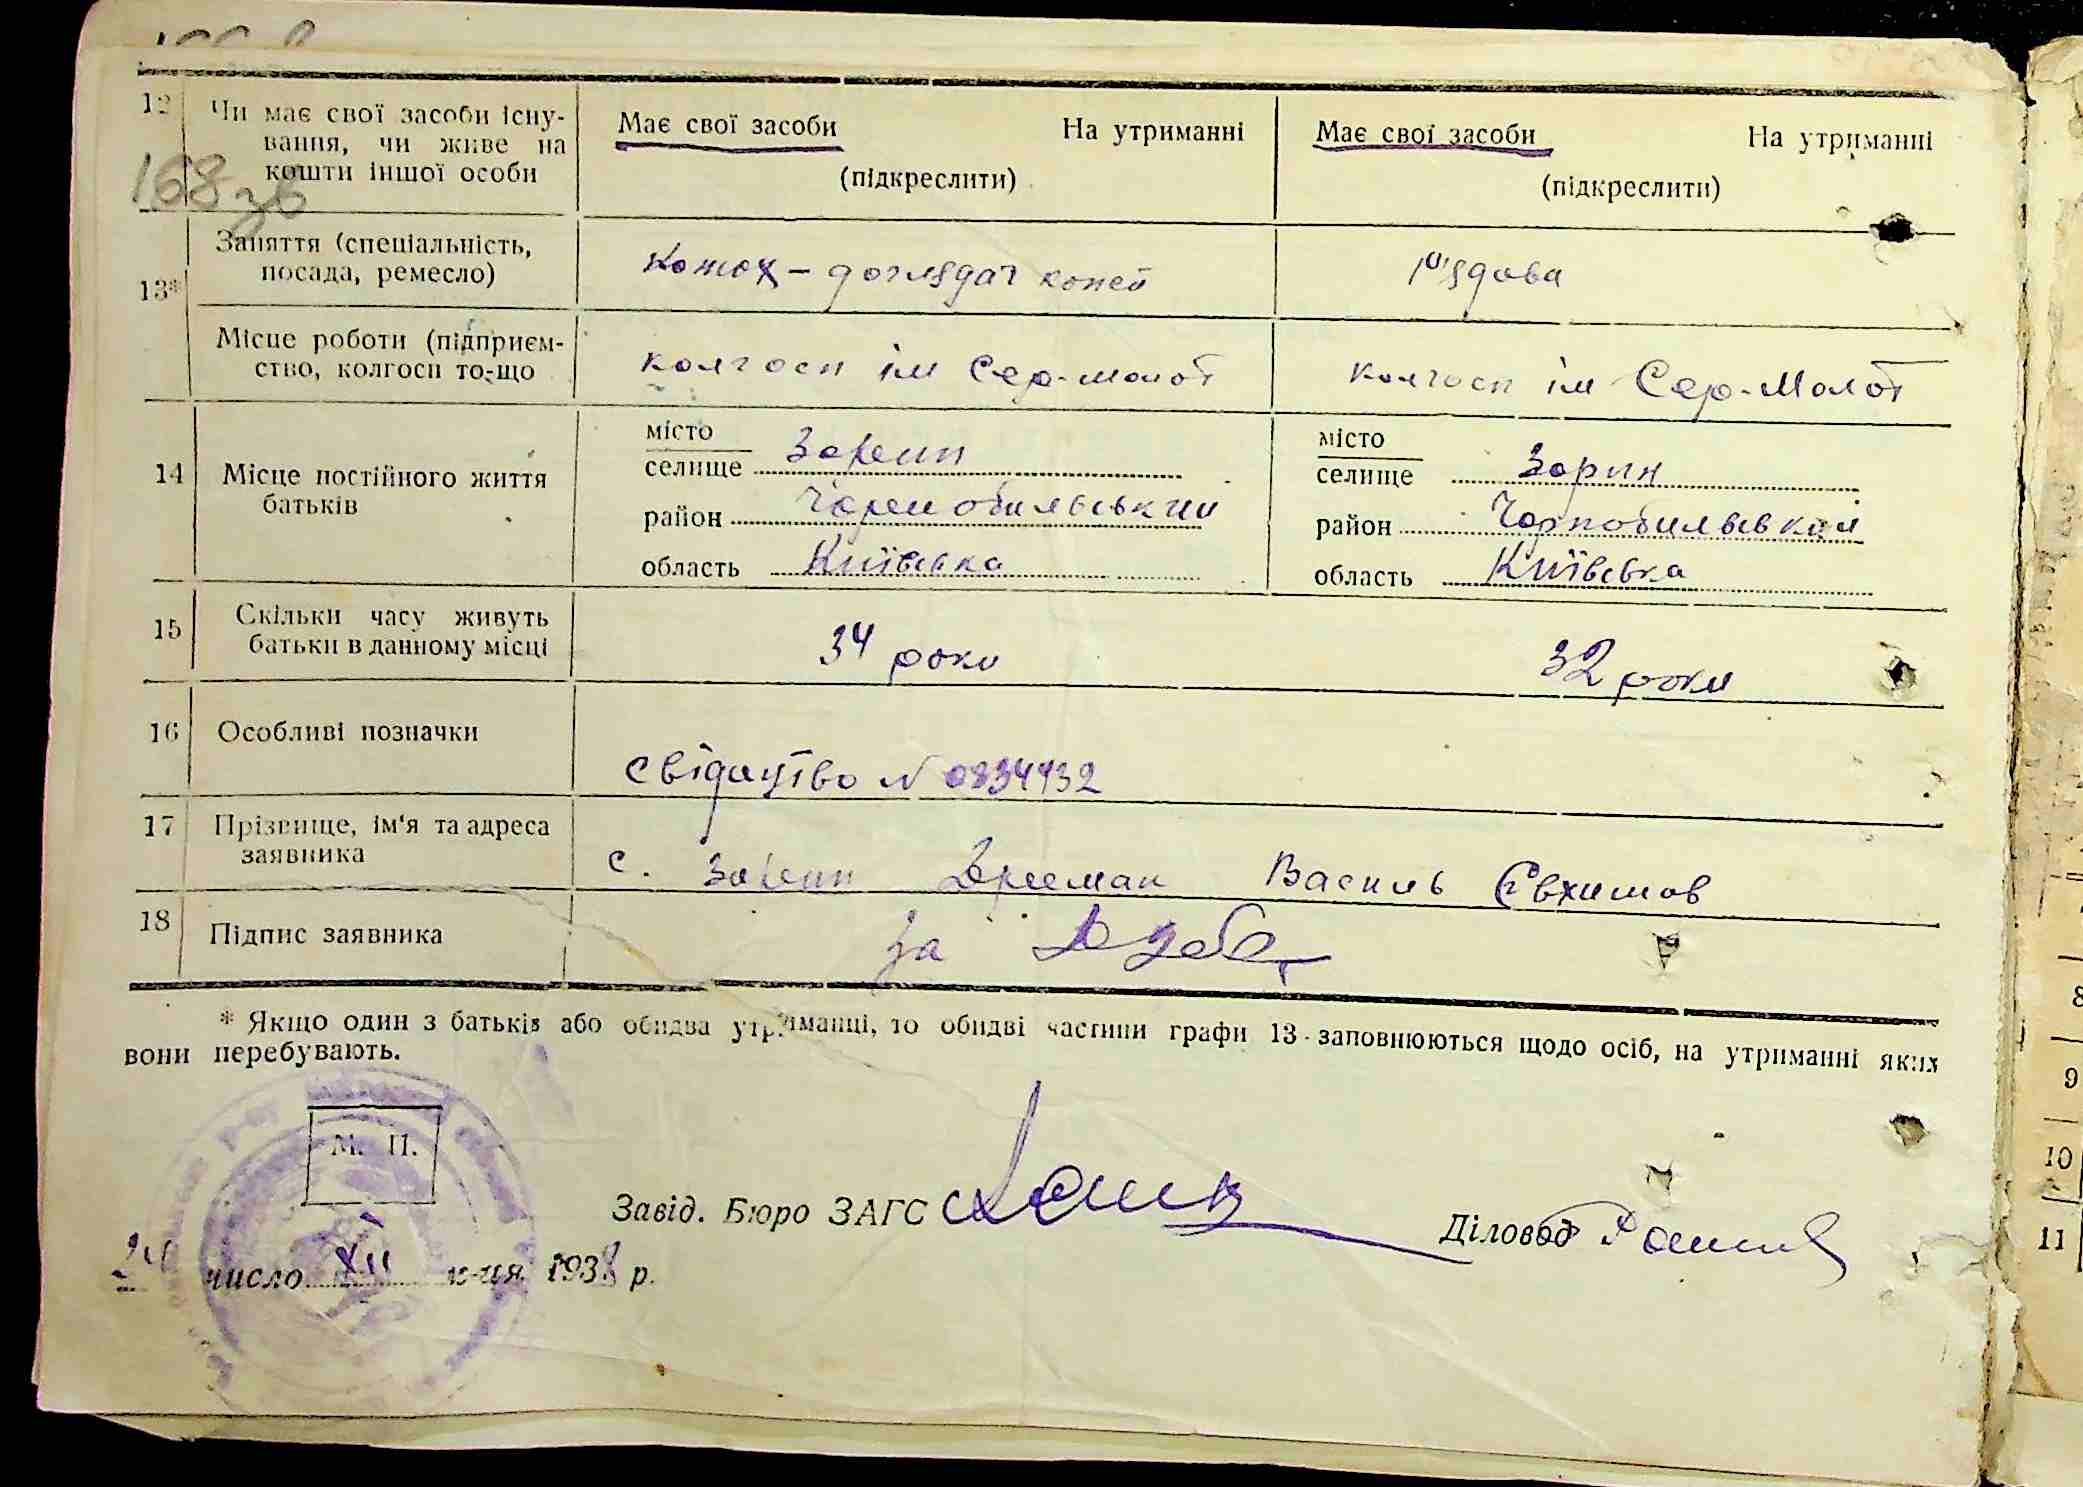 12 Чи має свої засоби існу-
вання, чи живе на
кошти іншої особи
Має свої засоби На утриманні
(підкреслити)
Має свої засоби На утриманні
(підкреслити)
168 зв
13* Заняття (спеціальність,
посада, ремесло)
Конюх – доглядач коней
рядова
Місце роботи (підприєм-
ство, колгосп то-що
колгосп ім Сер-молот
колгосп ім Сер-Молот
14 Місце постійного життя
батьків
місто
селище Зорин
район Чорнобильський
область Київська
місто
селище Зорин
район Чорнобильський
область Київська
15 Скільки часу живуть
батьки в данному місці
34 роки
32 роки
16 Особливі позначки
свідоцтво N 0834432
17 Прізвище, ім'я та адреса
заявника
с. Зорин Василь Євхимов
18 Підпис заявника
за
* Якщо один з батьків або обидва утриманці, то обидві частини графи 13 заповнюються щодо осіб, на утриманні яких
вони перебувають.
М. П.
Завід. Бюро ЗАГС
Діловод
24 число XII м-ця 1938 р.
8
9
10
11